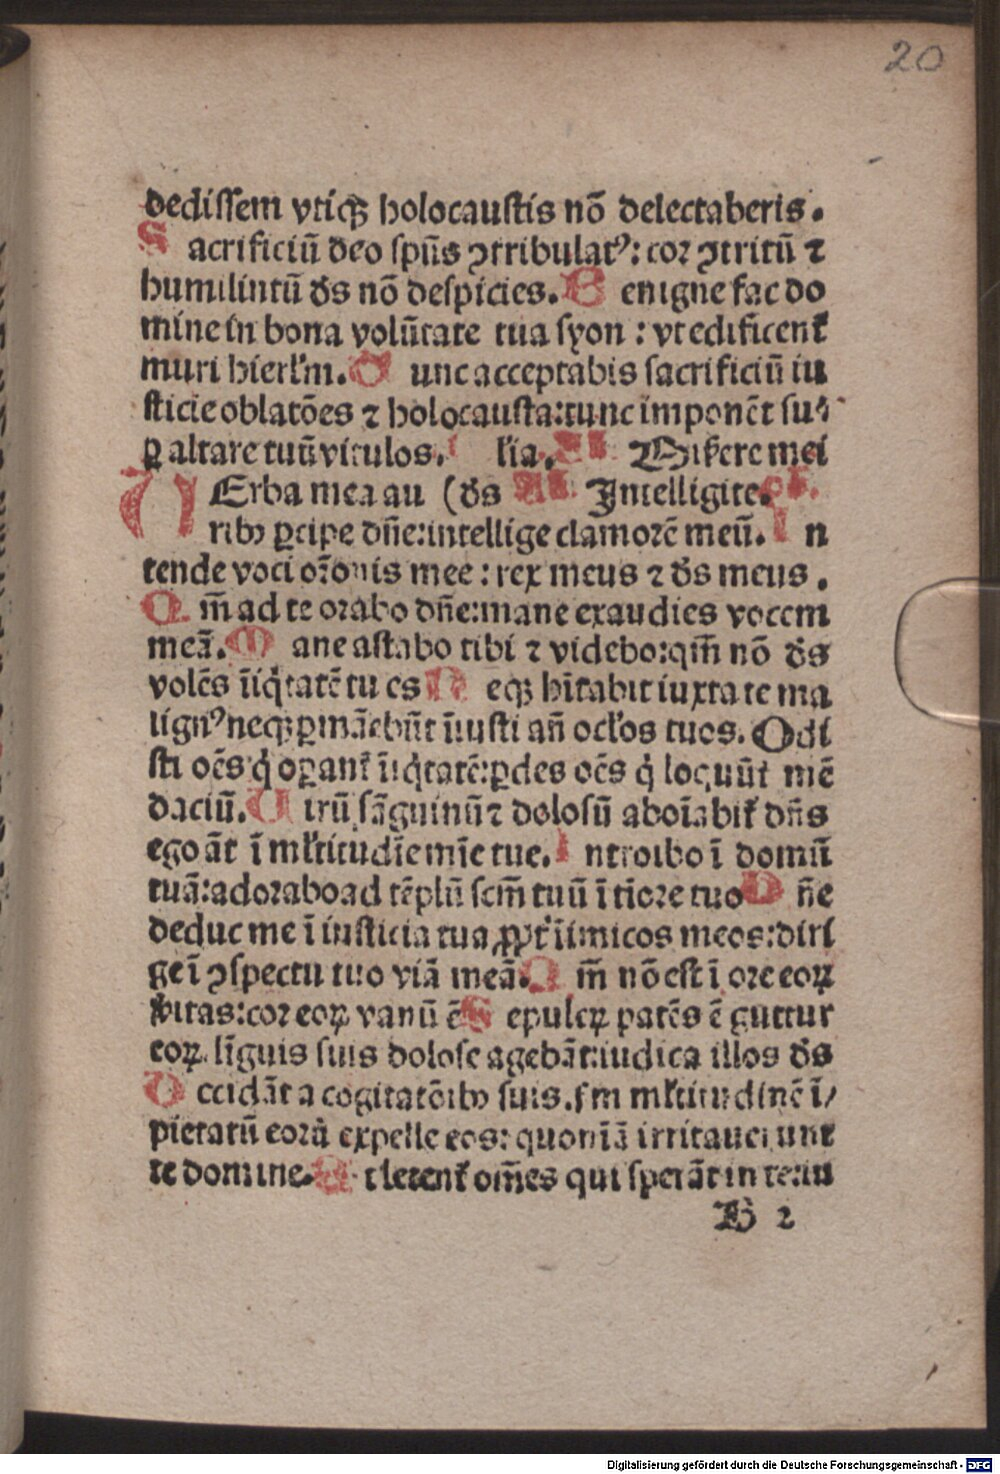 20
dedissem vtiqꝫ holocaustis nō delectaberis.
Sacrificiū deo spūs ꝯtribulatꝰ: cor ꝯtritū ⁊
humiliatū ds̄ nō despicies. Benigne fac do
mine in bona volūtate tua syon: vt edificent᷑
muri hierl̄m. Tunc acceptabis sacrificiū iu
sticie oblatōes ⁊ holocausta: tunc imponēt su
ꝑ altare tuū vitulos. Misere mei
VErba mea au (ds̄ Intellige.
ribꝰ ꝑcipe dn̄e: intellige clamorē meū. In
tende voci or̄onis mee: rex meus ⁊ ds̄ meus.
Qm̄ ad te orabo dn̄e: mane exaudies vocem
meā. Mane astabo tibi ⁊ videbo: qm̄ nō ds̄
volēs īiq̇tatē tu es Neqꝫ hītabit iuxta te ma
lignꝰ neqꝫ ꝑmāebūt īiusti an̄ ocl̓os tuos. Odi
sti oēs q̇ oꝑant᷑ īiq̇tatē: ꝑdes oēs q̇ loquūt᷑ mē
daciū. Virū sāguinū ⁊ dolosū aboīabit᷑ dn̄s
ego āt ī ml̓titudīe mīe tue. Introibo ī domū
tuā: adorabo ad tēplū scm̄ tuū ī tiore tuo Dn̄e
deduc me ī iusticia tua ꝓpt̓ īimicos meos: diri
ge ī ꝯspectu tuo viā meā. Qm̄ nō est ī ore eoꝝ
v̓itas: cor eoꝝ vanū ē Sepulcꝝ patēs ē guttur
eoꝝ linguis suis dolose agebāt: iudica illos ds̄
Occidāt a cogitatōibꝰ suis. sm ml̓titudinē ī/
pietatū eorū expelle eos: quoniā irritauerunt
te domine. Et letent᷑ om̄es qui sperāt in te: in
B 2
Digitalisierung gefördert durch die Deutsche Forschungsgemeinschaft - DFG